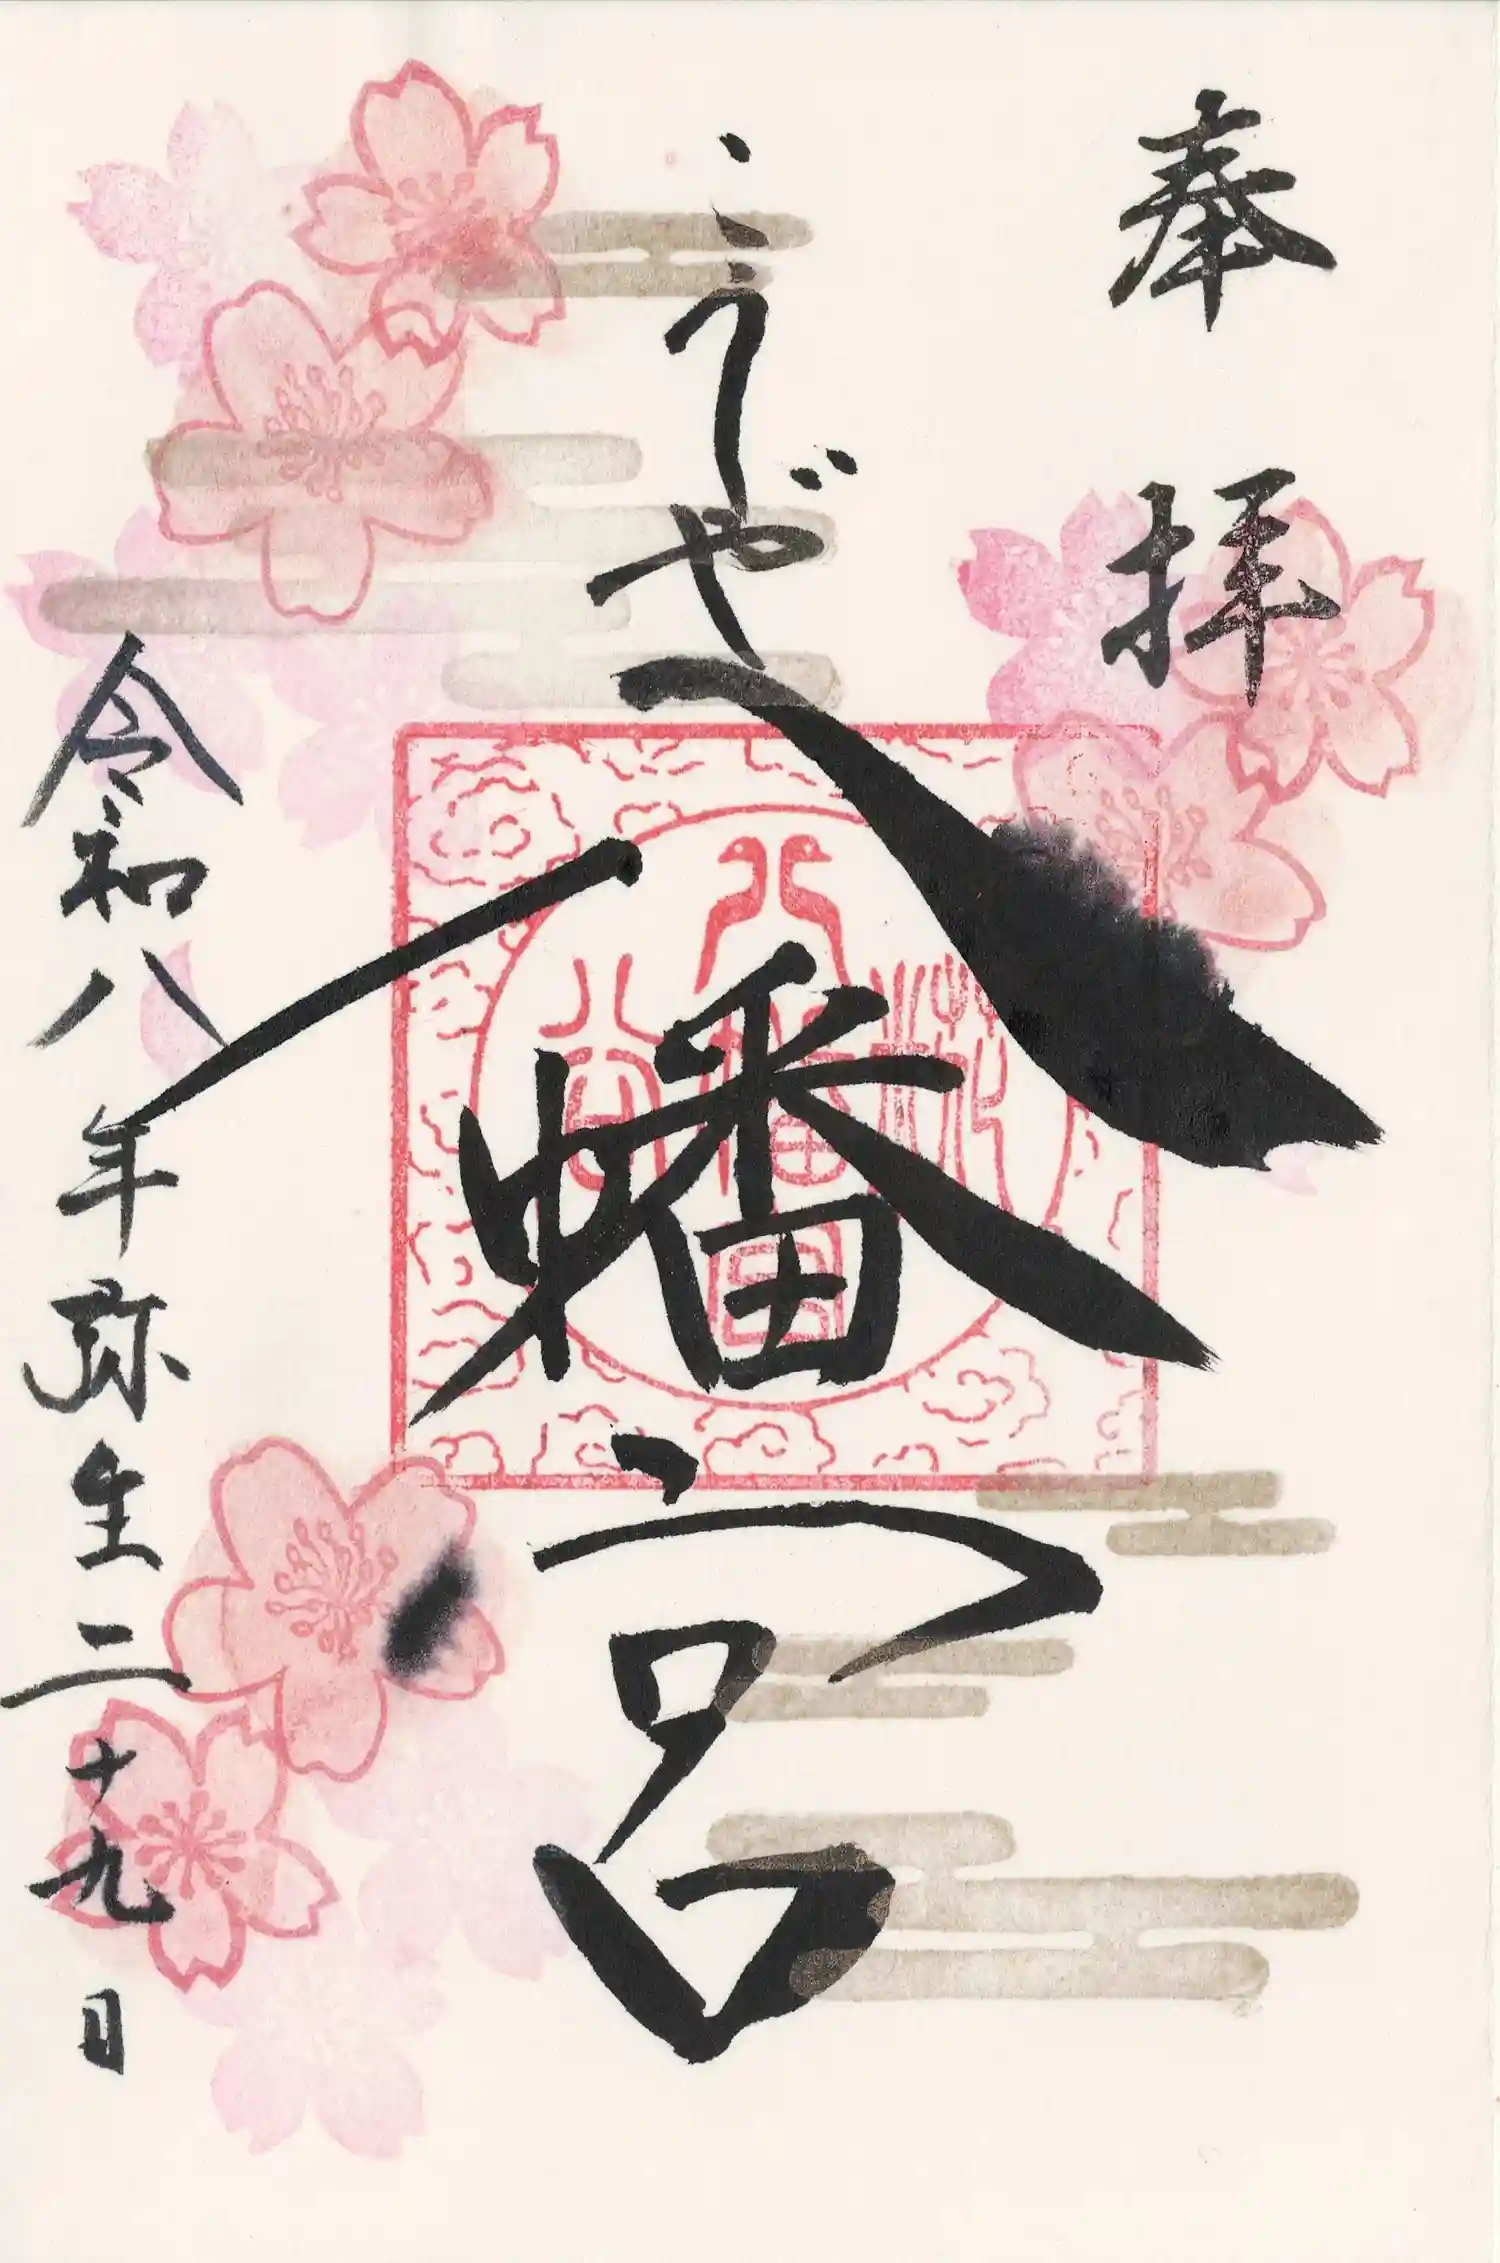 奉拝
こうじや八幡宮
令和八年弥生二十九日